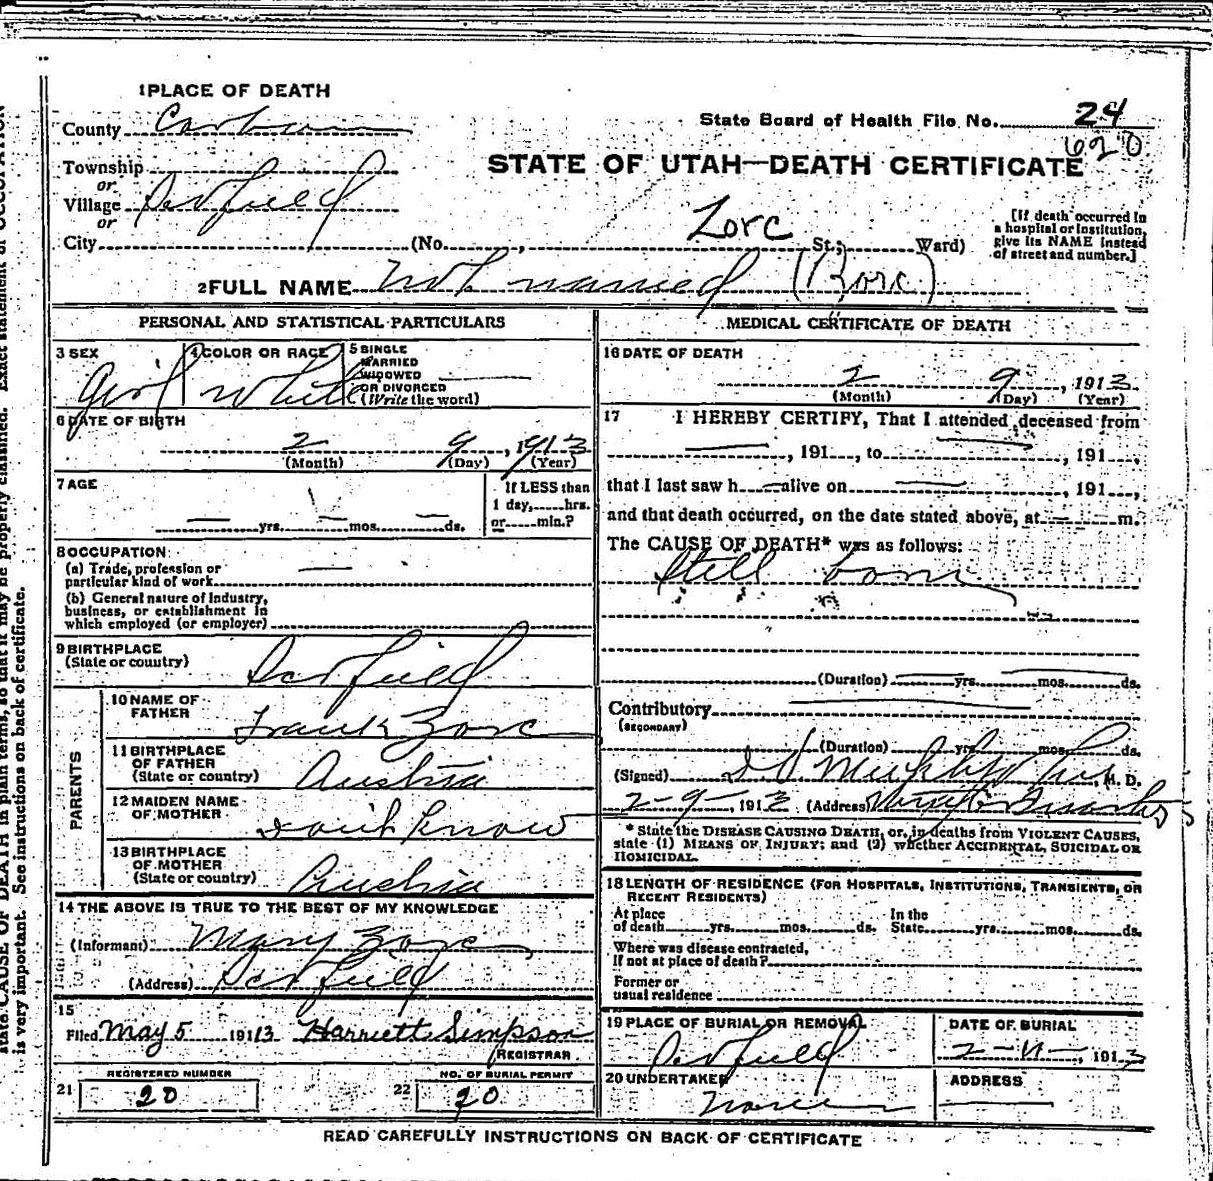 1 PLACE OF DEATH
County Carbon
State Board of Health File No. 24
620
Township
or
STATE OF UTAH—DEATH CERTIFICATE
Village Scofield
or
City (No. , Zorc St.; Ward)
[If death occurred in a hospital or institution, give its NAME instead of street and number.]
2 FULL NAME Not named (Zorc)
PERSONAL AND STATISTICAL PARTICULARS
3 SEX Girl
4 COLOR OR RACE White
5 SINGLE MARRIED WIDOWED OR DIVORCED (Write the word)
6 DATE OF BIRTH
2 9, 1913
(Month) (Day) (Year)
7 AGE
— yrs. — mos. — ds.
If LESS than 1 day, hrs. or min.?
8 OCCUPATION
(a) Trade, profession or particular kind of work —
(b) General nature of Industry, business, or establishment in which employed (or employer)
9 BIRTHPLACE (State or country) Scofield
PARENTS
10 NAME OF FATHER Frank Zorc
11 BIRTHPLACE OF FATHER (State or country) Austria
12 MAIDEN NAME OF MOTHER don't know
13 BIRTHPLACE OF MOTHER (State or country) Austria
14 THE ABOVE IS TRUE TO THE BEST OF MY KNOWLEDGE
(Informant) Mary Zorc
(Address) Scofield
15
Filed May 5 191 13 Harriett Simpson
REGISTRAR
REGISTERED NUMBER
21 20
NO. OF BURIAL PERMIT
22 20
MEDICAL CERTIFICATE OF DEATH
16 DATE OF DEATH
2 9, 1913
(Month) (Day) (Year)
17 I HEREBY CERTIFY, That I attended deceased from
—, 191 , to —, 191 ,
that I last saw h — alive on —, 191 ,
and that death occurred, on the date stated above, at — m.
The CAUSE OF DEATH* was as follows:
Still born
(Duration) — yrs. — mos. — ds.
Contributory —
(SECONDARY)
(Duration) yrs. mos. ds.
(Signed) M. D.
2-9-, 1913 (Address)
* State the DISEASE CAUSING DEATH, or, in deaths from VIOLENT CAUSES, state (1) MEANS OF INJURY; and (2) whether ACCIDENTAL, SUICIDAL OR HOMICIDAL.
18 LENGTH OF RESIDENCE (FOR HOSPITALS, INSTITUTIONS, TRANSIENTS, OR RECENT RESIDENTS)
At place of death yrs. mos. ds. In the State yrs. mos. ds.
Where was disease contracted, if not at place of death?
Former or usual residence
19 PLACE OF BURIAL OR REMOVAL Scofield
DATE OF BURIAL
2-11-, 1913
20 UNDERTAKER None
ADDRESS —
READ CAREFULLY INSTRUCTIONS ON BACK OF CERTIFICATE
state CAUSE OF DEATH in plain terms, so that it may be properly classified. Exact statement of OCCUPATION
is very important. See instructions on back of certificate.